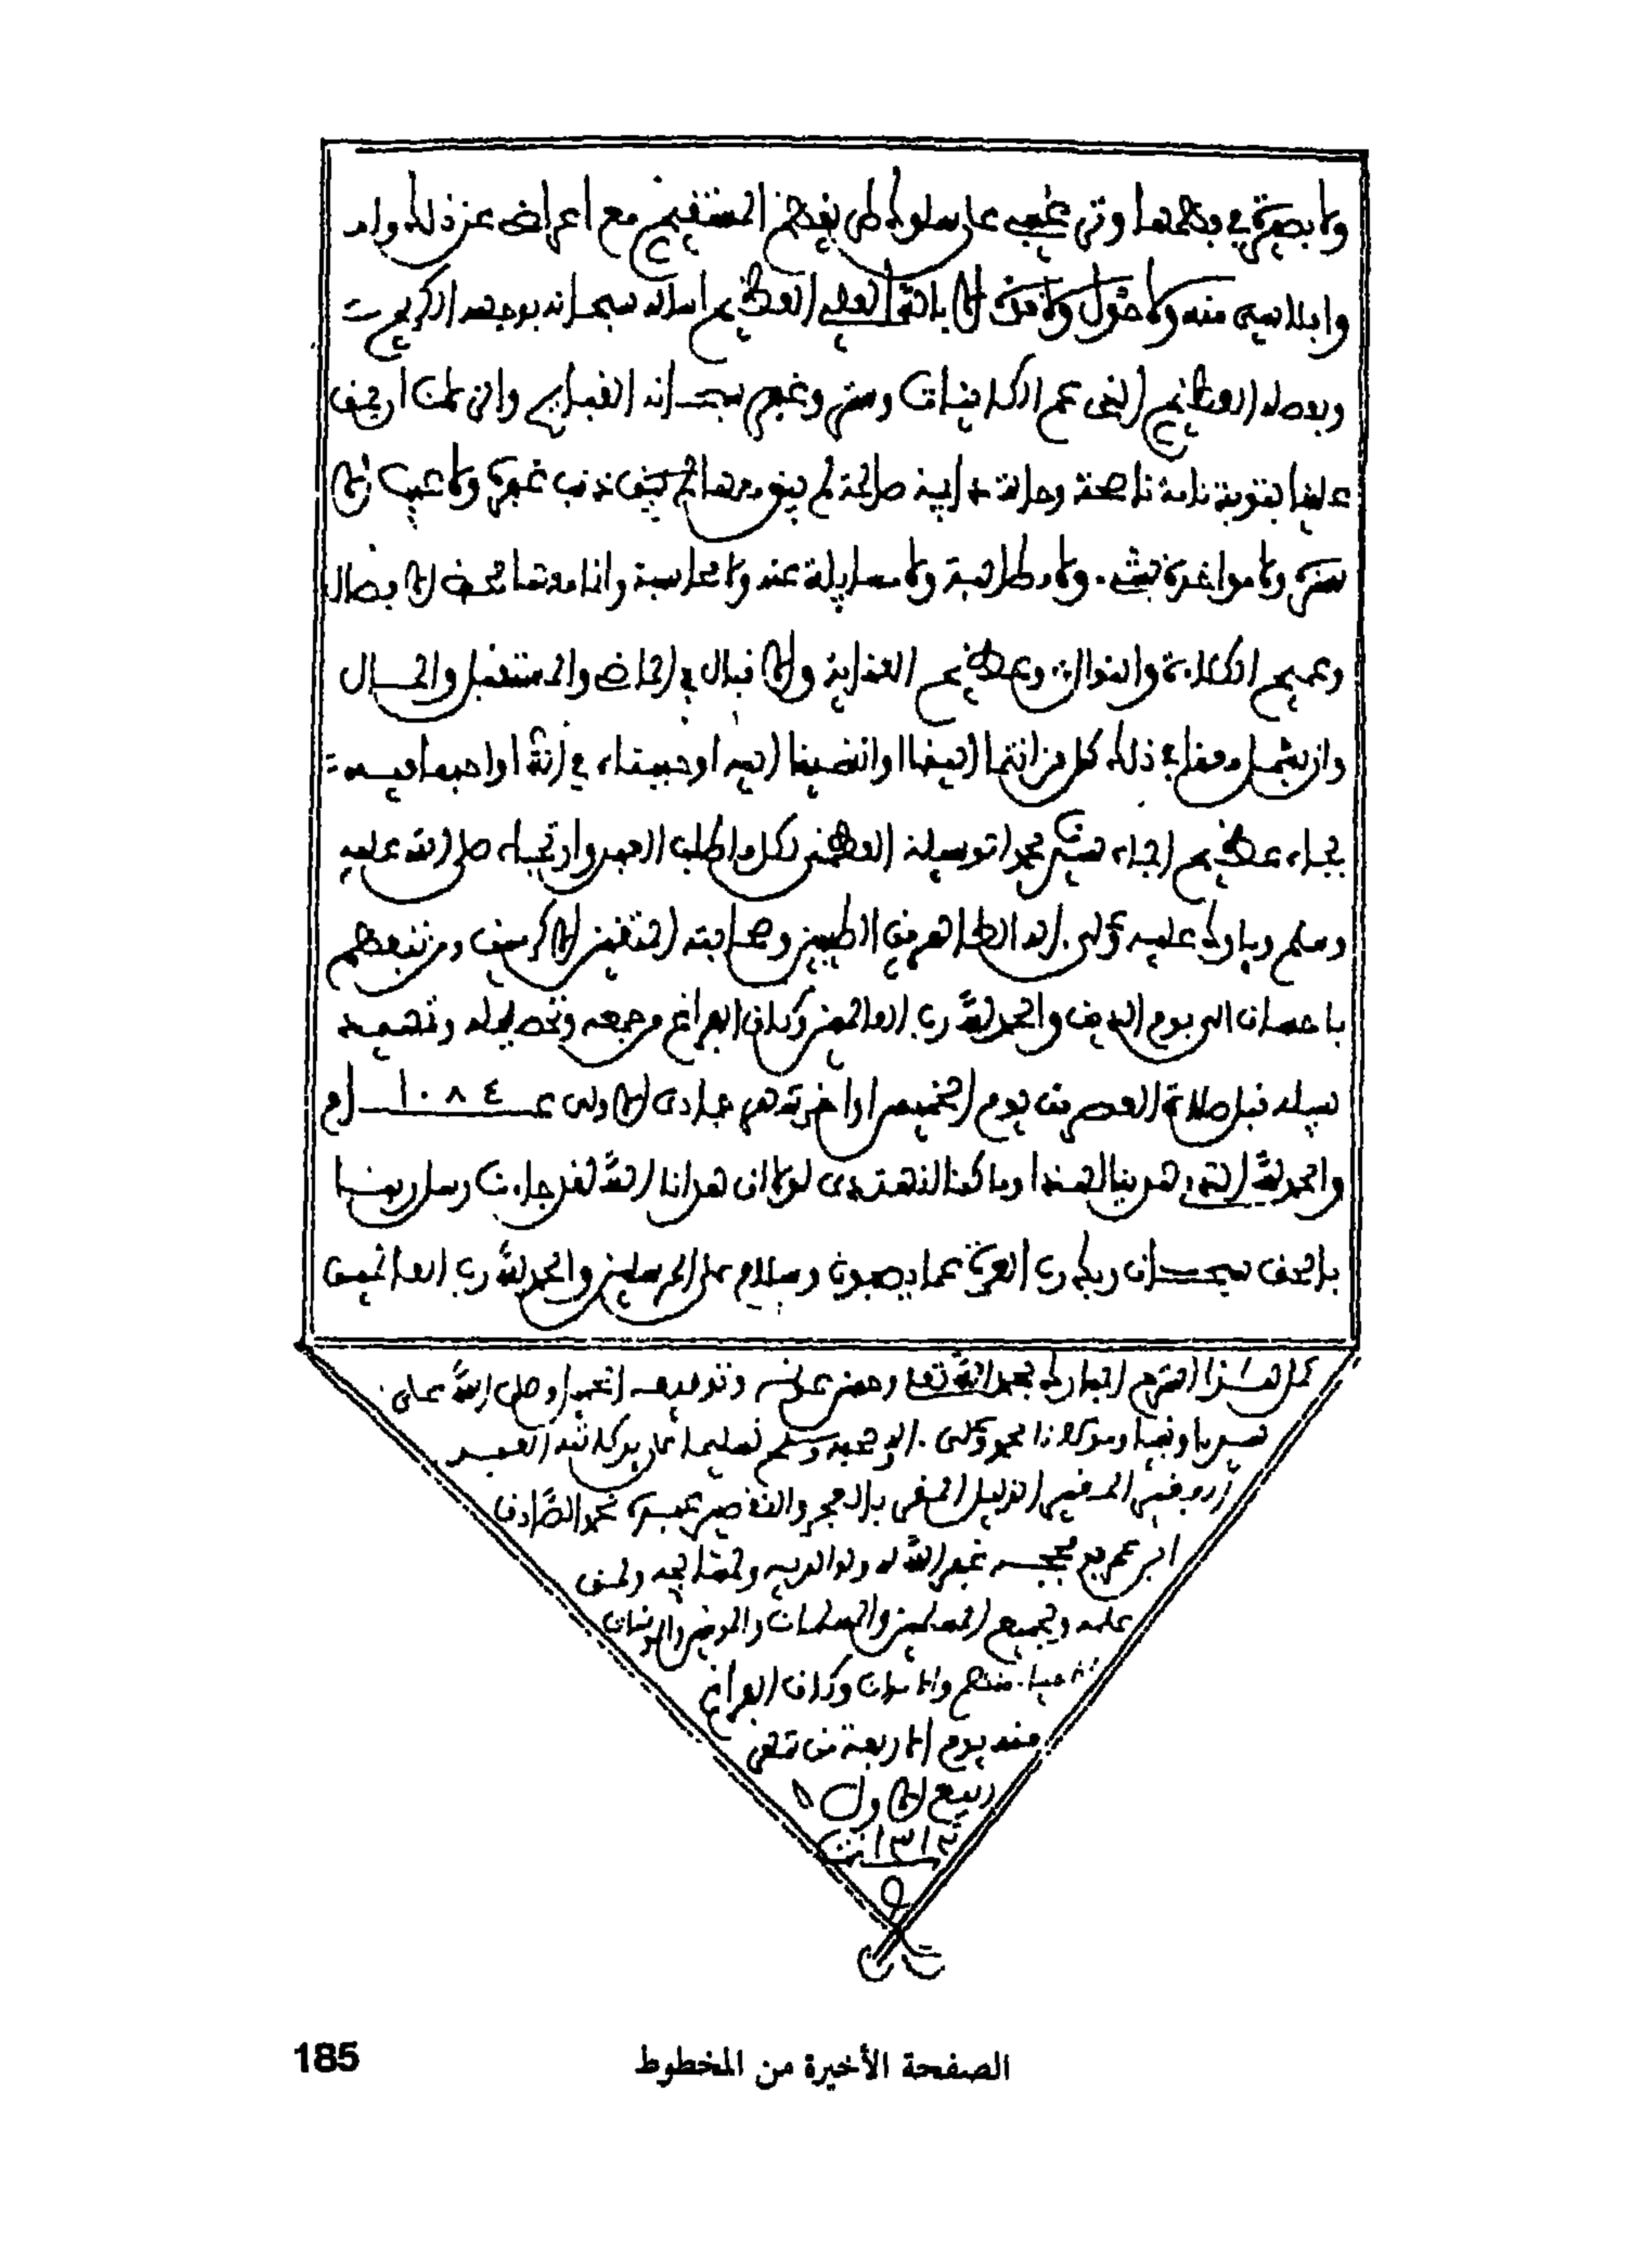 ولا بصيرة في بدهما وترغيب على سلوك طريقهم المستقيم مع اعراض عن ذلك
منه ولا حول ولا قوة الا بالله العلي العظيم اسأله سبحانه بوجهه الكريم
وبفضله العظيم الذي عم الكائنات وستر وغمر سبحانه القبائح والزلات ان يمن
علينا بتوبة تامة ناصحة وحالة دايمة صالحة لم يبق معها لم يبق ذنب غيره ولا عيب الا
ستره ولا مواخذة بشيء ولا مطالبة ولا مسايلة عنه ولا محاسبة وانا معنا محض الافضال
وعميم الكلاءة والنوال وعظيم العناية والاقبال في الماضي والمستقبل والحال
وان يشمل معنا في ذلك كل من انتمى الينا او انتمينا اليه او حبيناه في الله او احبنا فيه
بجاه عظيم الجاه سيدنا محمد الوسيلة العظمى لكل طلب العبد وارتجاه صلى الله عليه
وسلم وبارك عليه وعلى آله الطاهرين الطيبين وصحابته المتقين الاكرمين ومن تبعهم
باحسان الى يوم الدين والحمد لله رب العالمين وكان الفراغ من جمعه وتحصيله وتمهيد
سبيله قبل صلاة العصر من يوم الخميس اواخر شهر جمادى الاولى عـ ١٠٨٤ ـام
والحمد لله الذي هدينا لهذا وما كنا لنهتدي لولا ان هدانا الله لقد جاءت رسل ربنا
بالحق سبحان ربك رب العزة عما يصفون وسلام على المرسلين والحمد لله رب العالمين
كمل هذا الشرح المبارك بحمد الله تعلى وحسن عونه وتوفيقه الجميل وصلى الله على
سيدنا ونبينا ومولانا محمد وعلى آله وصحبه وسلم تسليما على يد كاتبه العبيد
الفقير الذليل المقر بالعجز والتقصير عبده محمد الصادق
ابن عمر بن غفر الله له ولوالديه ولمشايخه ولمن
علمه ولجميع المسلمين والمسلمات والمومنين والمومنات
الاحياء منهم والاموات وكان الفراغ
منه يوم الاربعة من شهر
ربيع الاول
١٣١٢
الصفحة الأخيرة من المخطوط
185